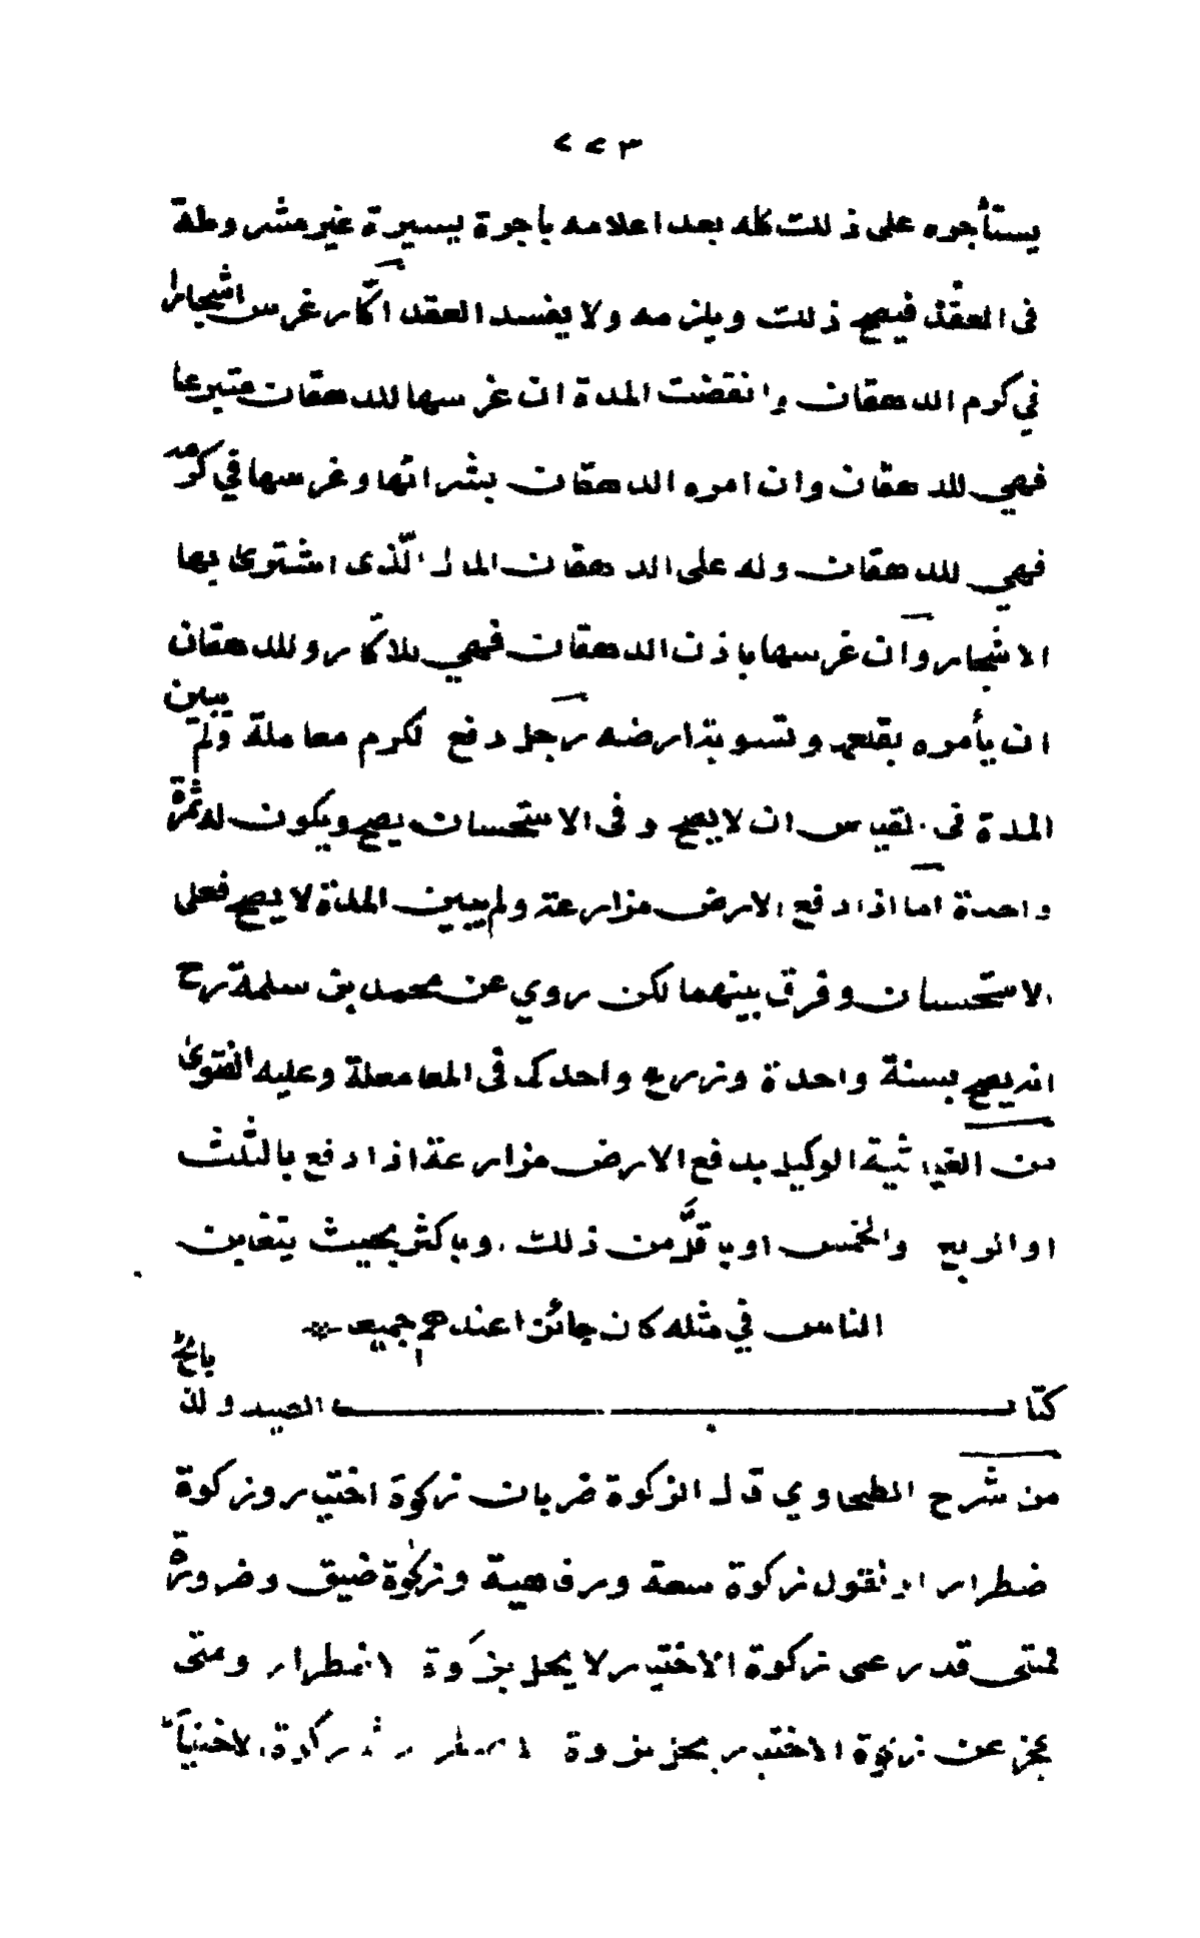 ٢٢٣
يستأجره على ذلك كله بعد اعلامه باجرة يسيرة غير مشروطة
فى العقد فيصح ذلك ويلزمه ولا يفسد العقد اكّار غرس اشجارا
في كرم الدهقان وانقضت المدة ان غرسها للدهقان متبرعا
فهي للدهقان وان امره الدهقان بشرائها وغرسها في كرمه
فهي للدهقان وله على الدهقان المال الّذى اشترى بها
الاشجار وان غرسها باذن الدهقان فهي للاكّار وللدهقان
ان يأمره بقلعها وتسوية ارضه رجل دفع لكرم معاملة ولم يبين
المدة فى القياس ان لا يصح و فى الاستحسان يصح ويكون له ثمرة
واحدة اما اذا دفع الارض مزارعة ولم يبين المدة لا يصح فعلى
الاستحسان وفرق بينهما لكن روي عن محمد بن سلمة رح
انه يصح بسنة واحدة وزرع واحد كما فى المعاملة وعليه الفتوى
من الغياثية الوكيل بدفع الارض مزارعة اذا دفع بالثلث
او الربع والخمس او باقلّ من ذلك وباكثر بحيث يتغابن
الناس في مثله كان جائزا عندهم جميعا
كتاب الصيد والذبائح
من شرح الطحاوي قال الزكوة ضربان زكوة اختيار وزكوة
ضطرار او نقول زكوة سعة ورفاهية وزكوة ضيق وضرورة
فمتى قدر على زكوة الاختيار لا يحل بزكوة اضطرار ومتى
عجز عن زكوة الاختيار يحل بزكوة الاضطرار الاختيا